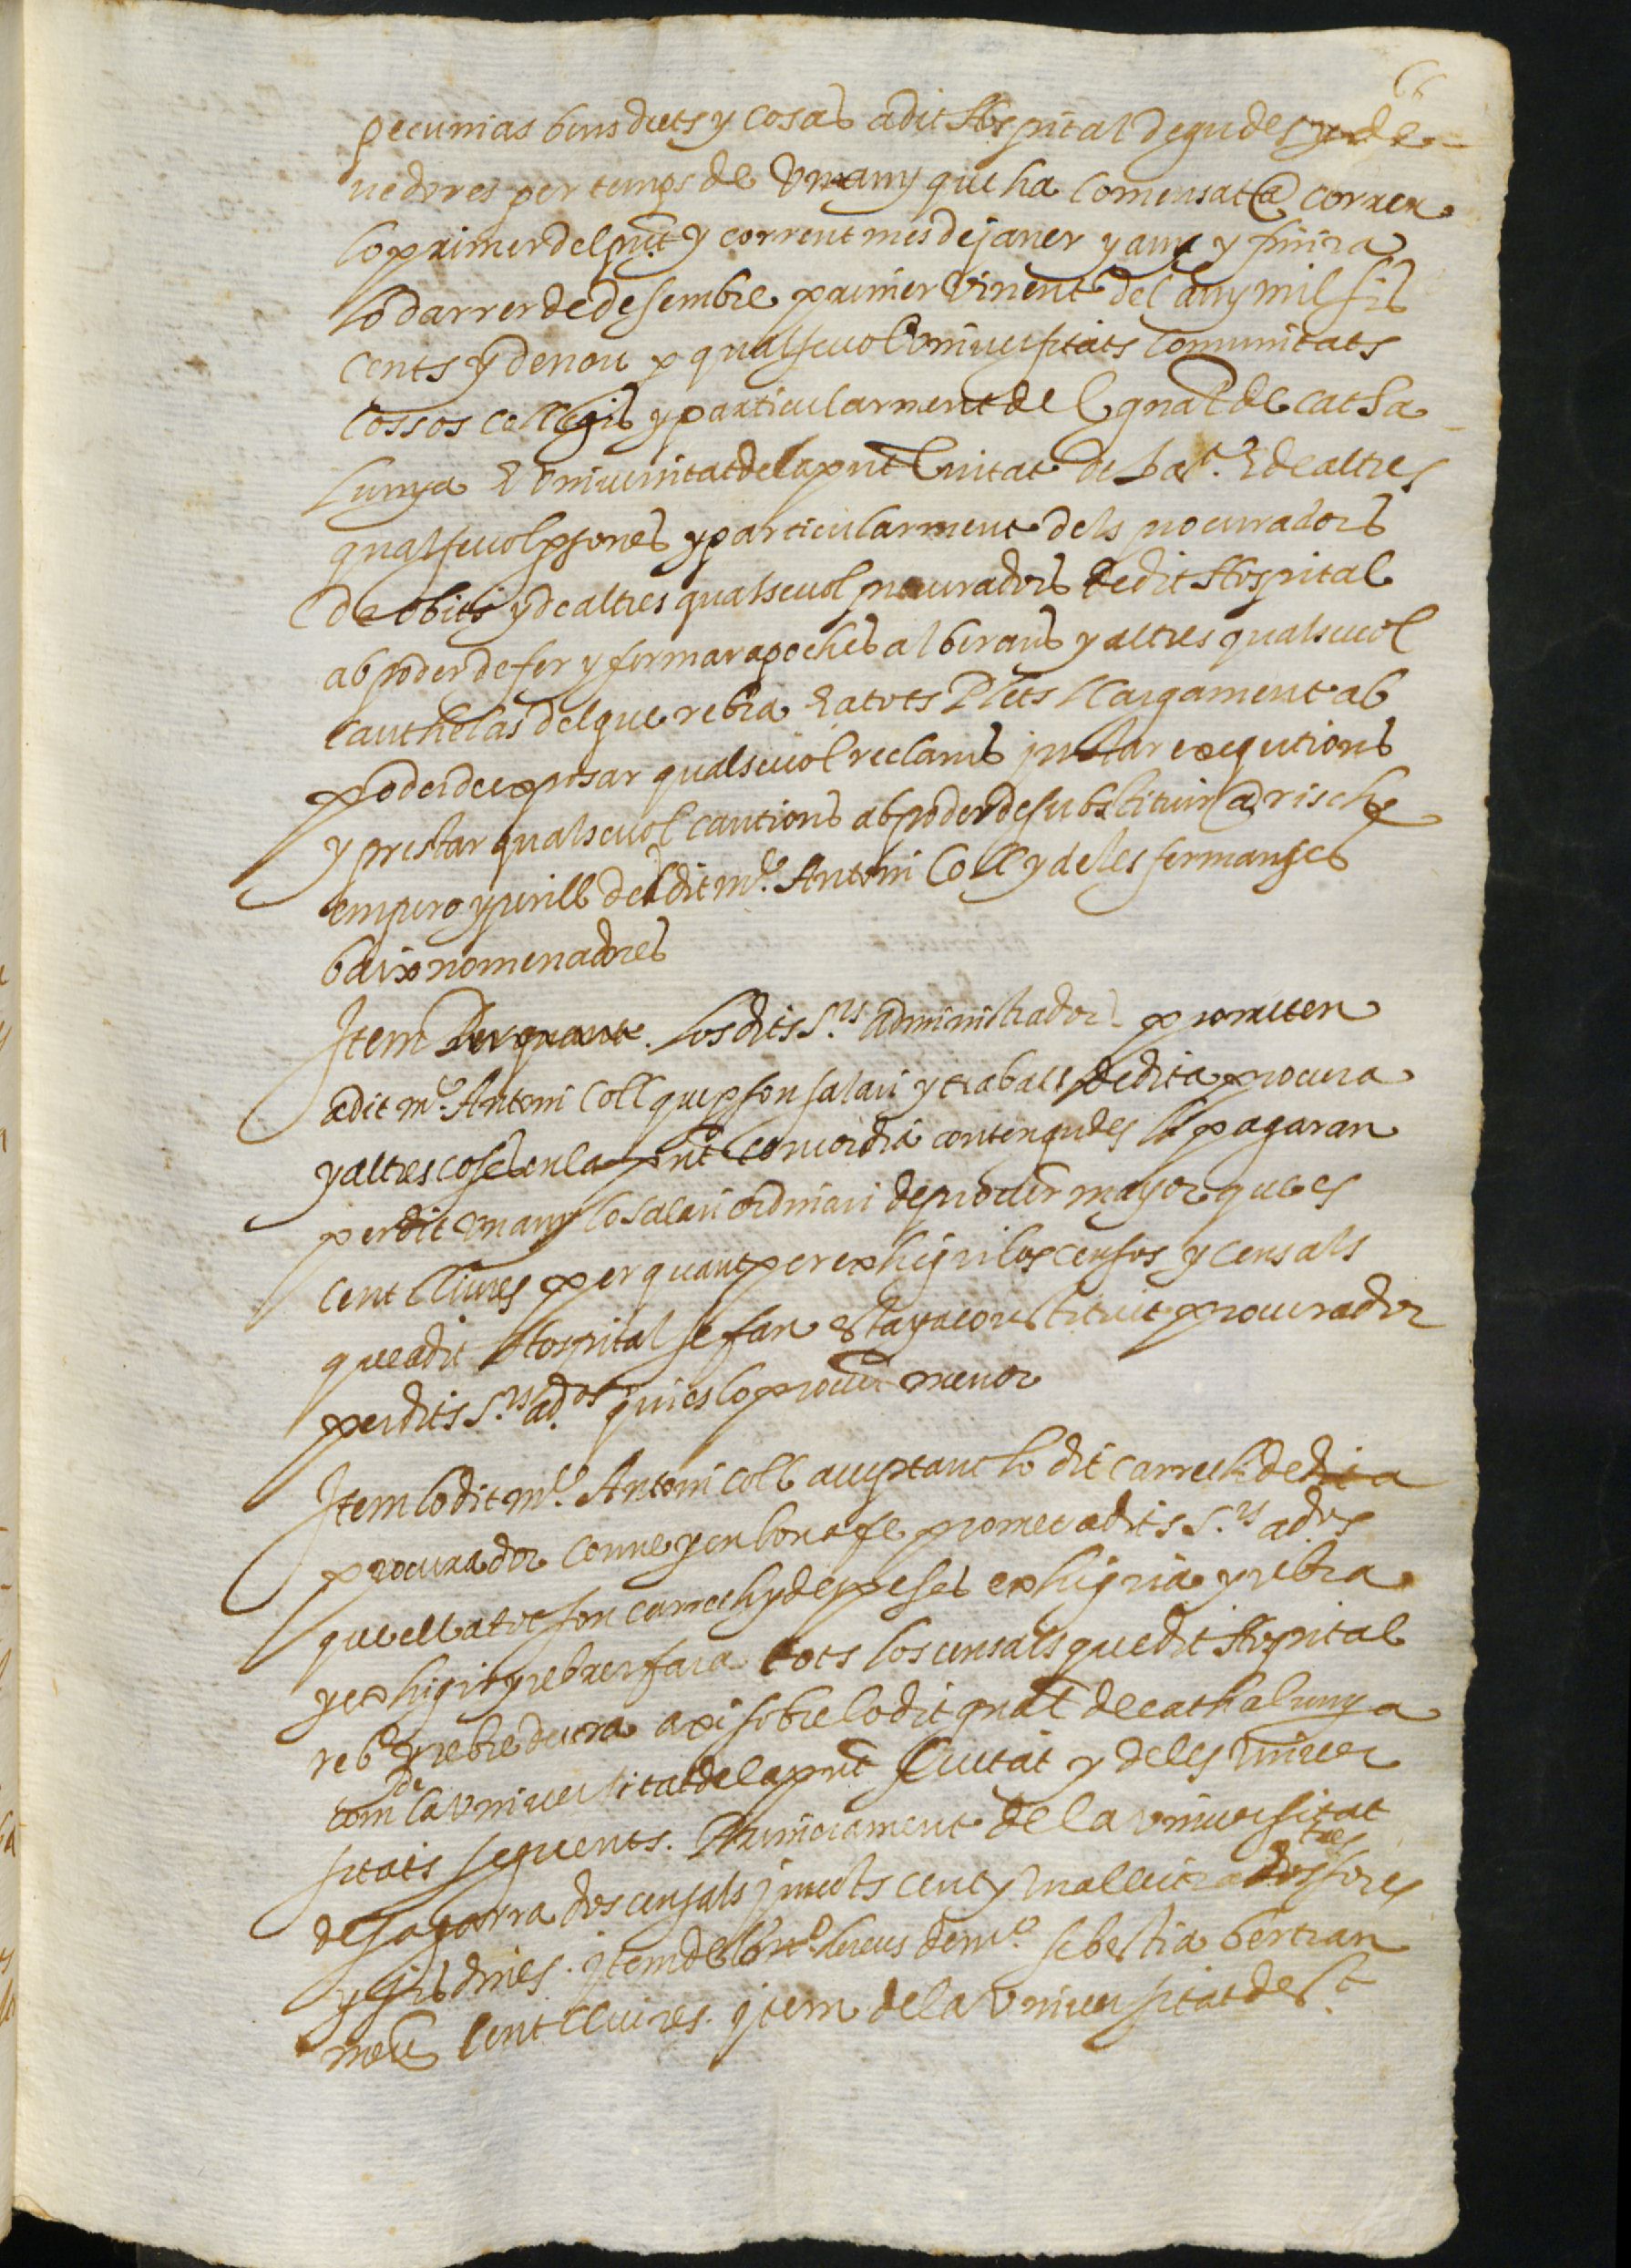 66
pecunias bens drets y cosas a dit Hospital degudes y de-
vedores per temps de un any que ha comensat a correr
lo primer del pnt y corrent mes de janer y any y finira
lo darrer de desembre primer vinent del any mil sis
cents y denou per qualsevol universitats comunitats
cossos collegis y particularment del gnal de Catha-
lunya E universitat de la pnt Ciutat de Bar.ª E de altres
qualsevol psones y particularment dels procuradors
de obits y de altres qualsevol procuradors de dit Hospital
ab poder de fer y fermar apoches albarans y altres qualsevol
cauthelas del que rebra E a tots Plets llargament ab
poder de exposar qualsevol reclams instar exequtions
y prestar qualsevol cautions ab poder de substituir a risch
empero y perill del dit mº. Antoni Coll y de les fermanses
baix nomenadores
Item Per quant los dits S.rs administradors prometen
a dit mº. Antoni Coll que p son salari y traballs de dita procura
y altres coses en la pnt concordia contengudes li pagaran
per dit un any lo salari ordinari de procur mayor que es
cent lliures per quant per exhigir los censos y censals
que a dit Hospital se fan esta ja constituit procurador
per dits S.rs ad.ors qui es lo procur menor
Item lo dit mº. Antoni Coll acceptant lo dit carrech de dit
procurador conve y en bona fe promet a dits S.rs ad.ors
que ell a tot son carrech y despeses exhigira y rebra
y exhigir y rebrer fara tots los censals que dit Hospital
reb y rebre deura axi sobre lo dit gnal de cathalunya
com de la universitat de la pnt Ciutat y de les univer
sitats seguents. Primerament de la universitat
de sagarra dos censals junts cent y nou lliures tres sous
y sis dines. Item dels hereus de mº. sebestia bertran
meu cent lliures. Item de la universitat de St